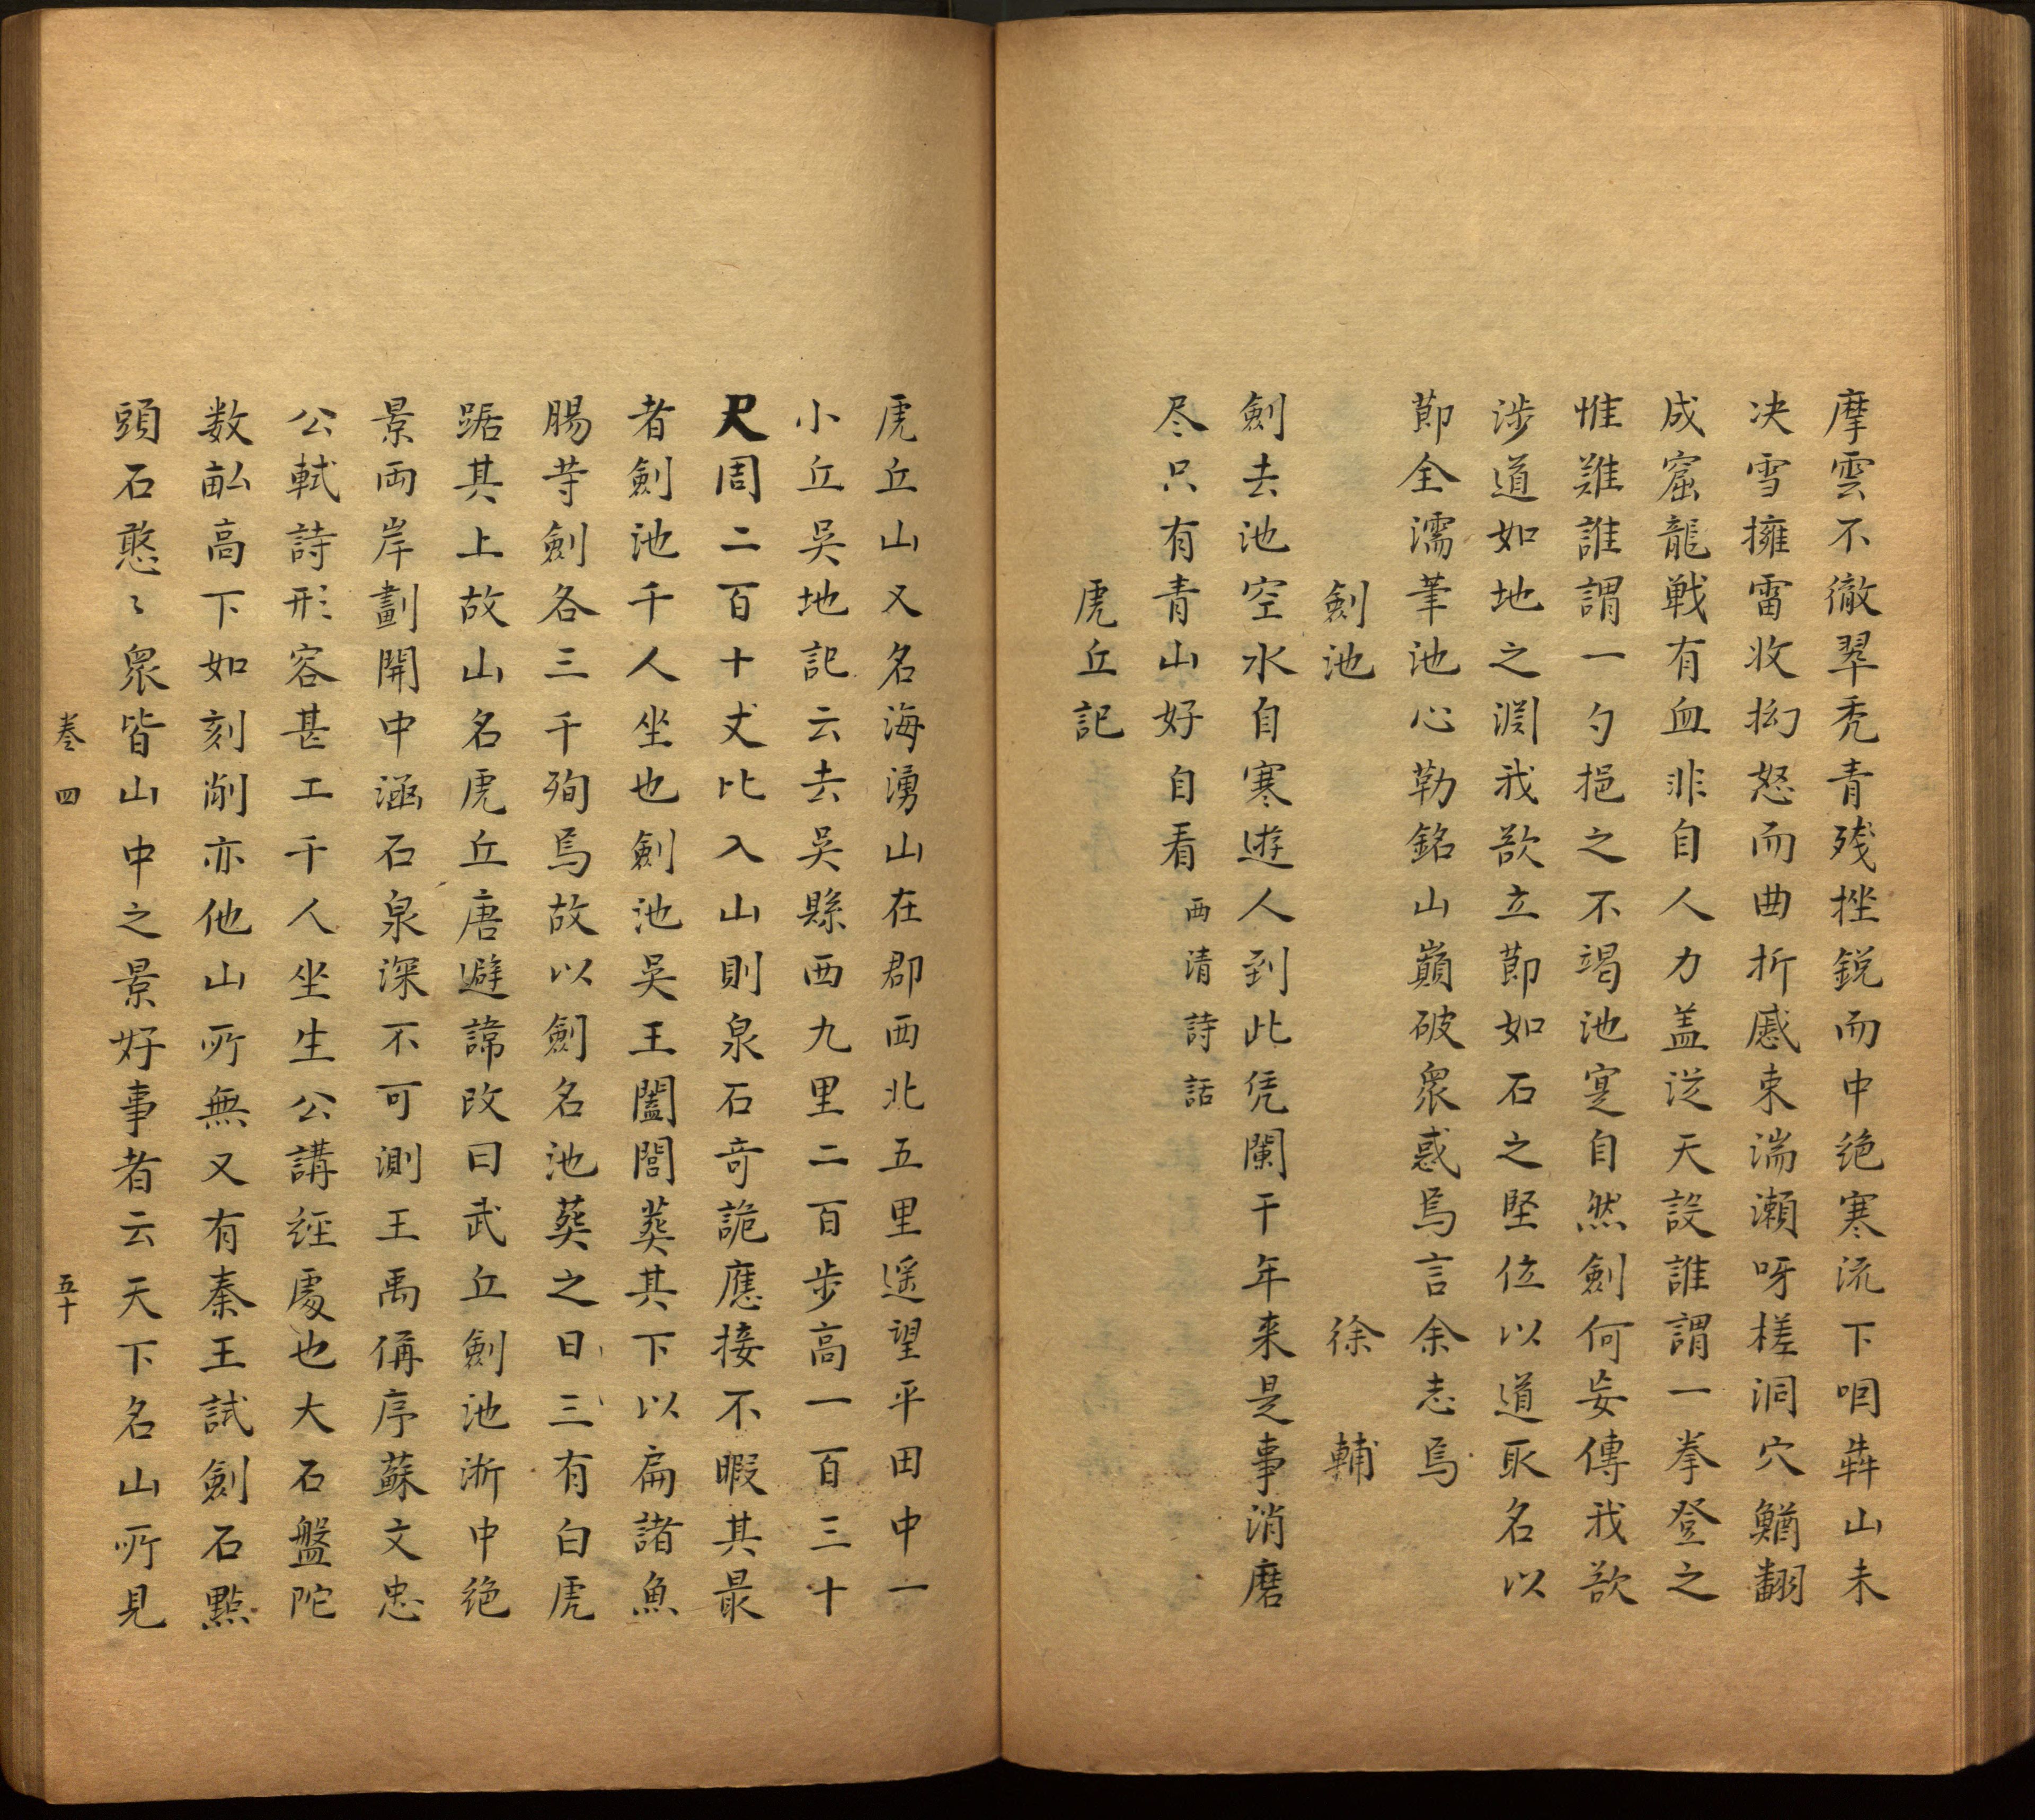 摩雲不徹翠禿青殘挫鋭而中绝寒流下咽犇山未
决雪擁雷收拗怒而曲折感束湍瀨呀槎洞穴鰌翻
成窟龍戦有血非自人力盖従天設誰謂一拳登之
惟難誰謂一勺挹之不竭池寔自然劍何妄傳我欲
涉道如地之淵我欲立莭如石之堅位以道取名以
莭全濡筆池心勒銘山巔破衆惑焉言余志焉
劍池 徐輔
劍去池空水自寒遊人到此凭闌干年来是事消磨
尽只有青山好自看 西清詩話
虎丘記
虎丘山又名海湧山在郡西北五里遥望平田中一
小丘吳地記云去吳縣西九里二百步高一百三十
尺周二百十丈比入山則泉石竒詭應接不暇其最
者劍池千人坐也劍池吳王闔閭葬其下以扁諸魚
腸䓁劍各三千殉焉故以劍名池葬之日三有白虎
踞其上故山名虎丘唐避諱改曰武丘劍池浙中绝
景両岸劃開中涵石泉深不可測王禹偁序蘇文忠
公軾詩形容甚工千人坐生公講経處也大石盤陀
数畝高下如刻削亦他山所無又有秦王試劍石點
頭石憨〻衆皆山中之景好事者云天下名山所見
卷四 五十